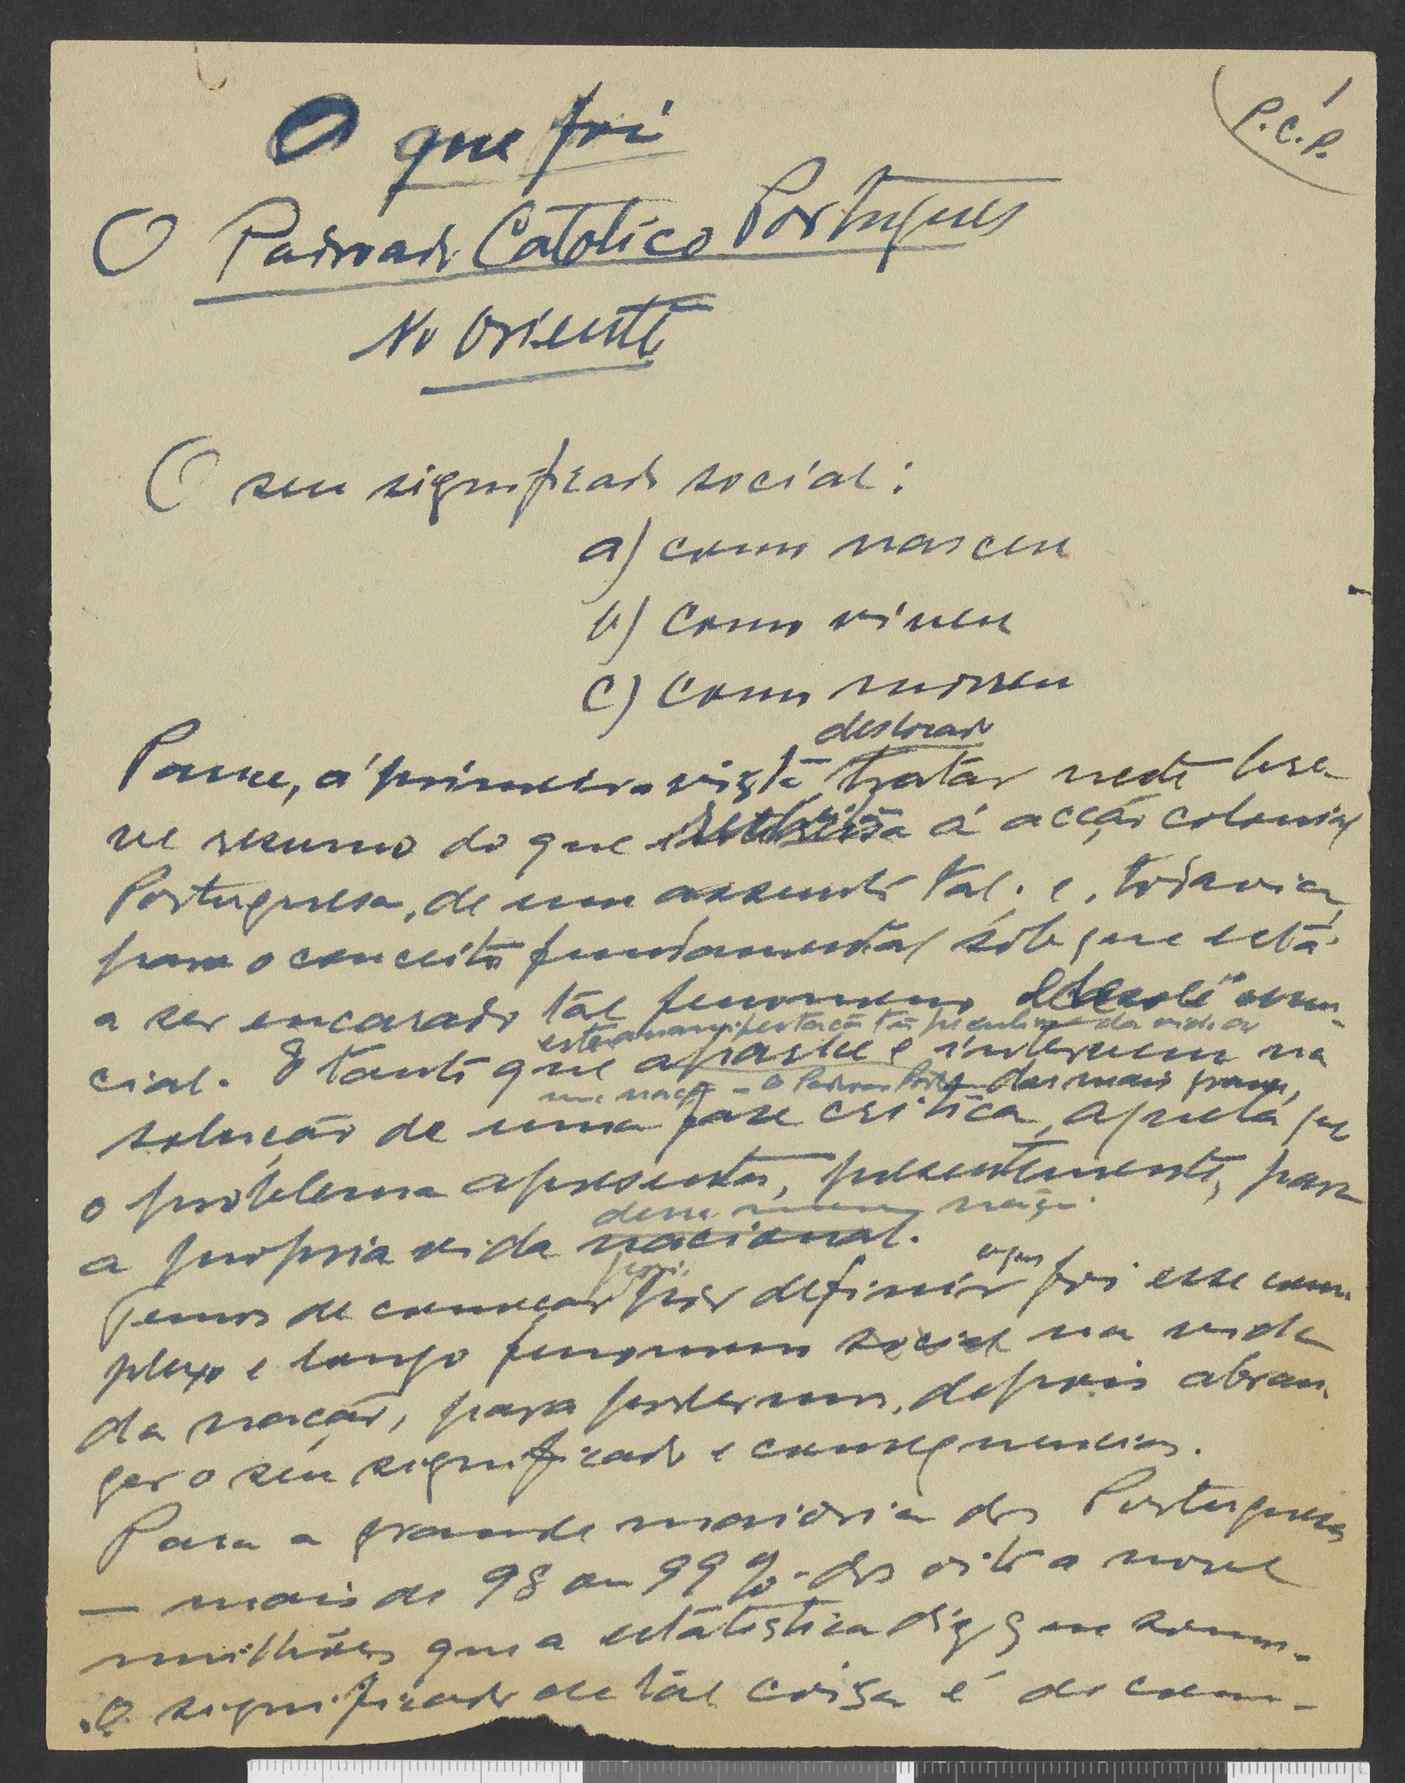 P.C.P.
O que foi
O Padroado Catolico Português
No Oriente
O seu significado social:
a) como nasceu
b) como viveu
c) como morreu
deslocado
Parece, á primeira vista, tratar neste bre-
ve resumo do que á acção colonial
Portuguesa, de um assunto tal. e, todavia,
para o conceito fundamental sob que está
a ser encarado tal fenomeno
esta manifestação tão peculiar da vida
cial. E tanto que aparece e interveem na
uma nação - o Padroado das mais graves,
solução de uma fase critica, aquela que
o problema apresenta, presentemente, para
dessa mesma nação.
a propria vida nacional.
o que
Temos de começar por definir foi esse com-
plexo e longo fenomeno social na vida
da nação, para podermos, depois abran-
ger o seu significado e consequencias.
Para a grande maioria dos Portugueses
— mais de 98 ou 99% dos oito a nove
milhões que a estatistica diz que somos -
O significado de tal coisa é de com-